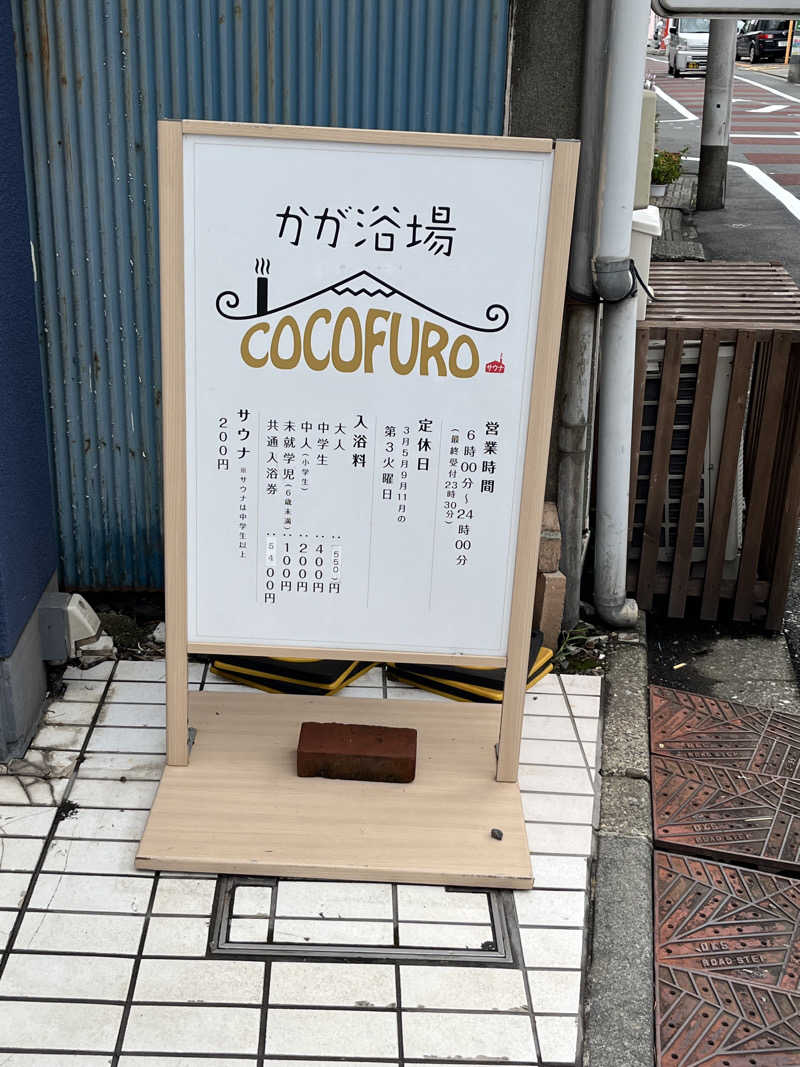 かが浴場
COCOFURO
サウナ
営業時間
6時00分〜24時00分
(最終受付23時30分)
定休日
3月5月9月11月の
第3火曜日
入浴料
大人 ‥(550)円
中学生 ‥400円
中人(小学生) ‥200円
未就学児(6歳未満)‥100円
共通入浴券 ‥5400円
サウナ ※サウナは中学生以上
200円
U&S
ROAD STEP
U&S
ROAD STEP
U&S
ROAD STEP